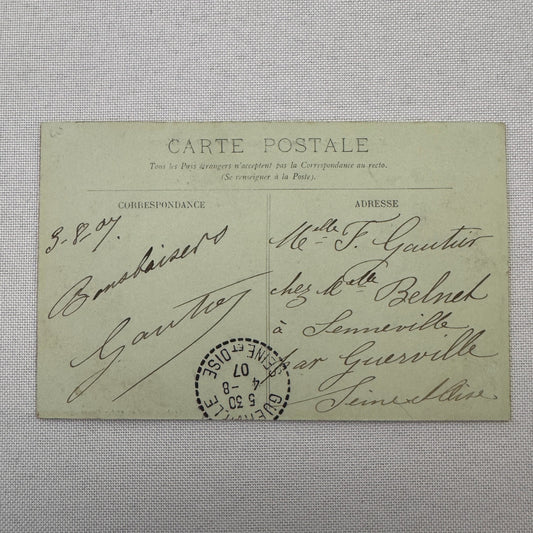 CARTE POSTALE
Tous les Pays étrangers n'acceptent pas la Correspondance au recto.
(Se renseigner à la Poste).
CORRESPONDANCE
3-8-07.
Bons baisers
ADRESSE
Melle F. Gautier
chez Melle Belnet
à Senneville
par Guerville
Seine et Oise
GUERVILLE
5 30
4 -8
07
SEINE ET OISE